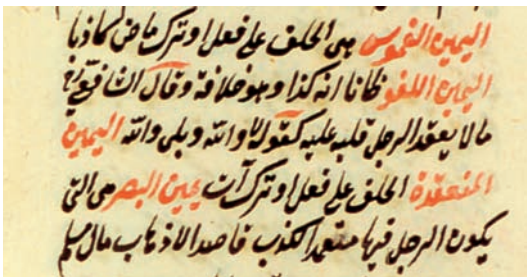 اليمين الغموس هى الحلف على فعل او ترك ماض كاذبا
اليمين اللغو ظانا انه كذا وهو خلافه وقال الشافعى رح
ما لا يعقد الرجل قلبه عليه كقوله لا والله وبلى والله اليمين
المنعقدة الحلف على فعل او ترك آت يمين الصبر هى التى
يكون الرجل فيها متعمد الكذب قاصدا لاذهاب مال مسلم